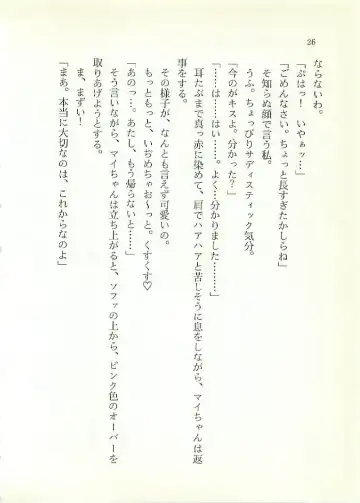 26
ならないわ。
「ぷはっ！　いやぁッ…」
「ごめんなさい。ちょっと長すぎたかしらね」
そ知らぬ顔で言う私。
うふ。ちょっぴりサディスティック気分。
「今のがキスよ。分かった？」
「……は……はい……。よく…分かりました………」
耳たぶまで真っ赤に染めて、肩でハアハアと苦しそうに息をしながら、マイちゃんは返
事をする。
その様子が、なんとも言えず可愛いの。
もっともっと、いぢめちゃお〜っと。くすくす♡
「あのっ…。あたし、もう帰らないと……」
そう言いながら、マイちゃんは立ち上がると、ソファの上から、ピンク色のオーバーを
取りあげようとする。
ま、まずい！
「まあ。本当に大切なのは、これからなのよ」